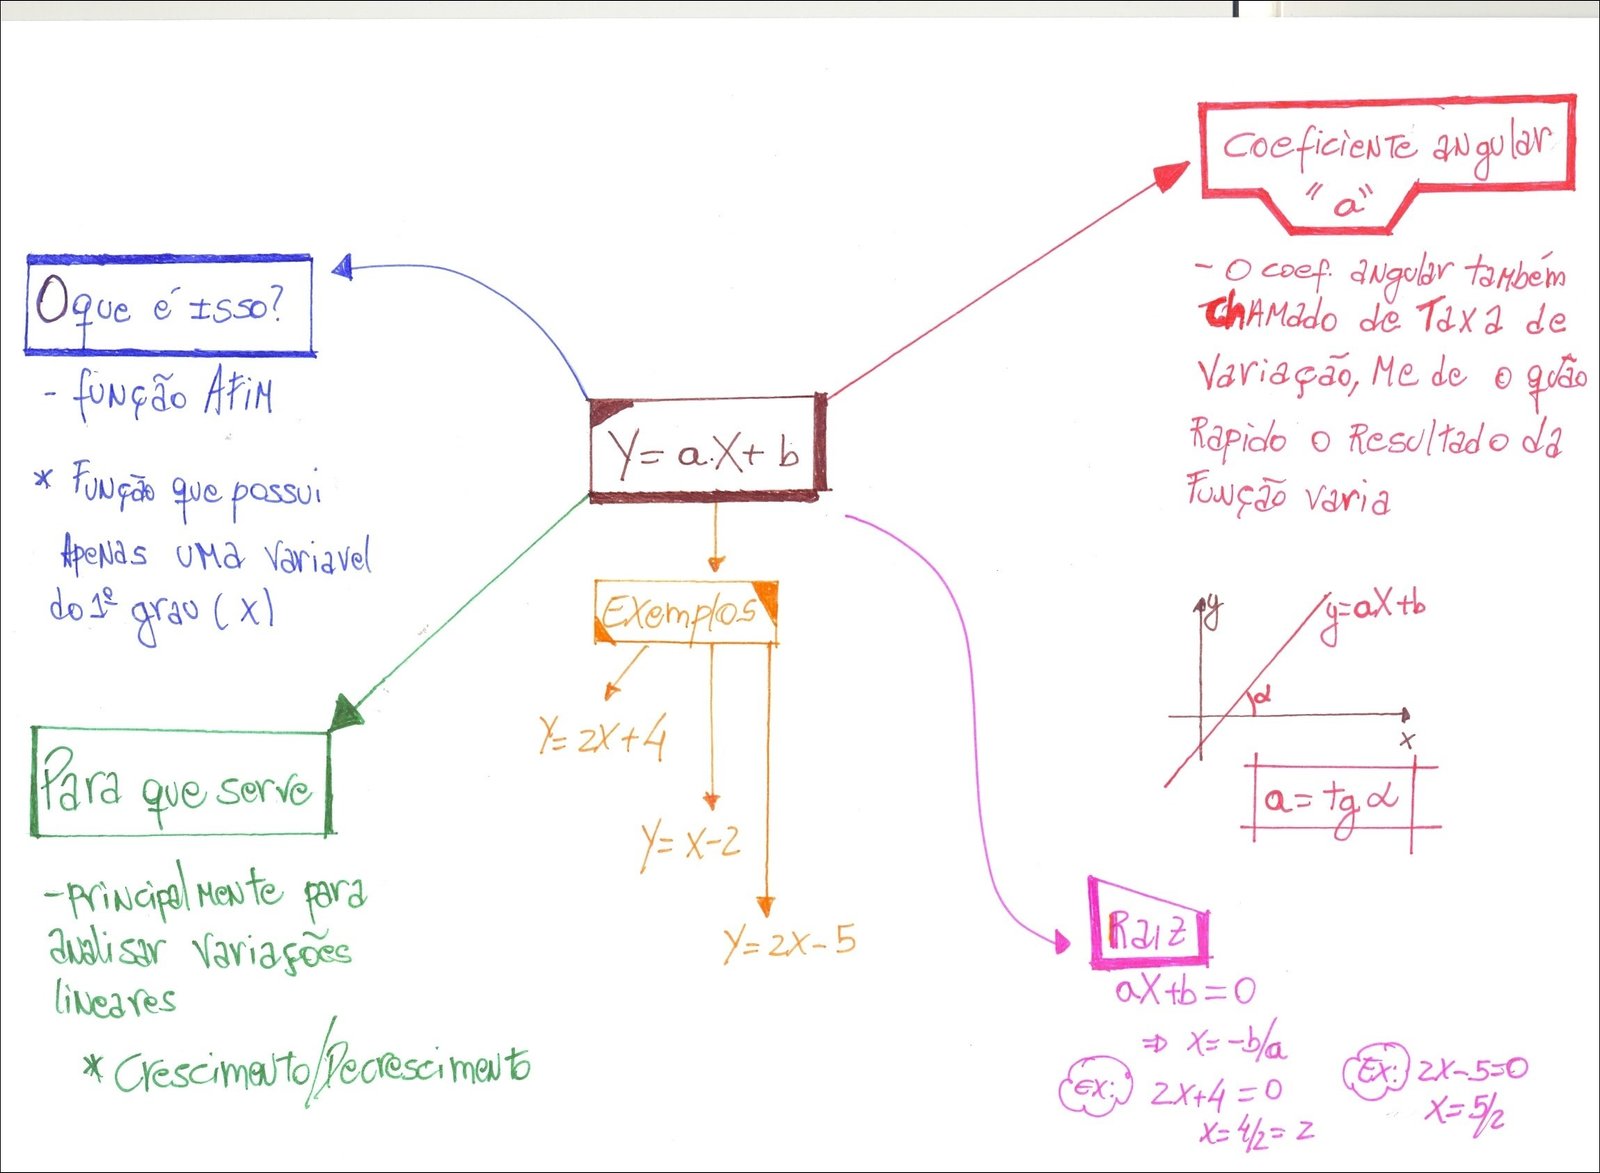 Y = a.X + b
O que é isso?
- função Afim
* Função que possui
Apenas uma variavel
do 1º grau (x)
Para que serve
- principalmente para
analisar variações
lineares
* Crescimento/Decrescimento
Exemplos
Y = 2X + 4
Y = X - 2
Y = 2X - 5
Coeficiente angular
"a"
- O coef. angular também
chamado de Taxa de
Variação, Mede o quão
Rapido o Resultado da
Função varia
y
y=aX+b
α
x
a = tg α
Raiz
aX+b = 0
⇒ X = -b/a
Ex: 2X+4 = 0
X = 4/2 = 2
Ex: 2X-5=0
X = 5/2